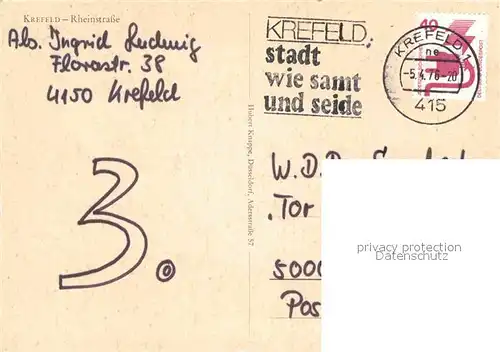 KREFELD – Rheinstraße
Abs. Ingrid Ludwig
Florastr. 38
4150 Krefeld
3.
Hubert Knappe, Düsseldorf, Adersstraße 57
KREFELD,
stadt
wie samt
und seide
KREFELD 1
-5.4.76-20
415
40
W.D.
Tor
5000
Pos
privacy protection
Datenschutz